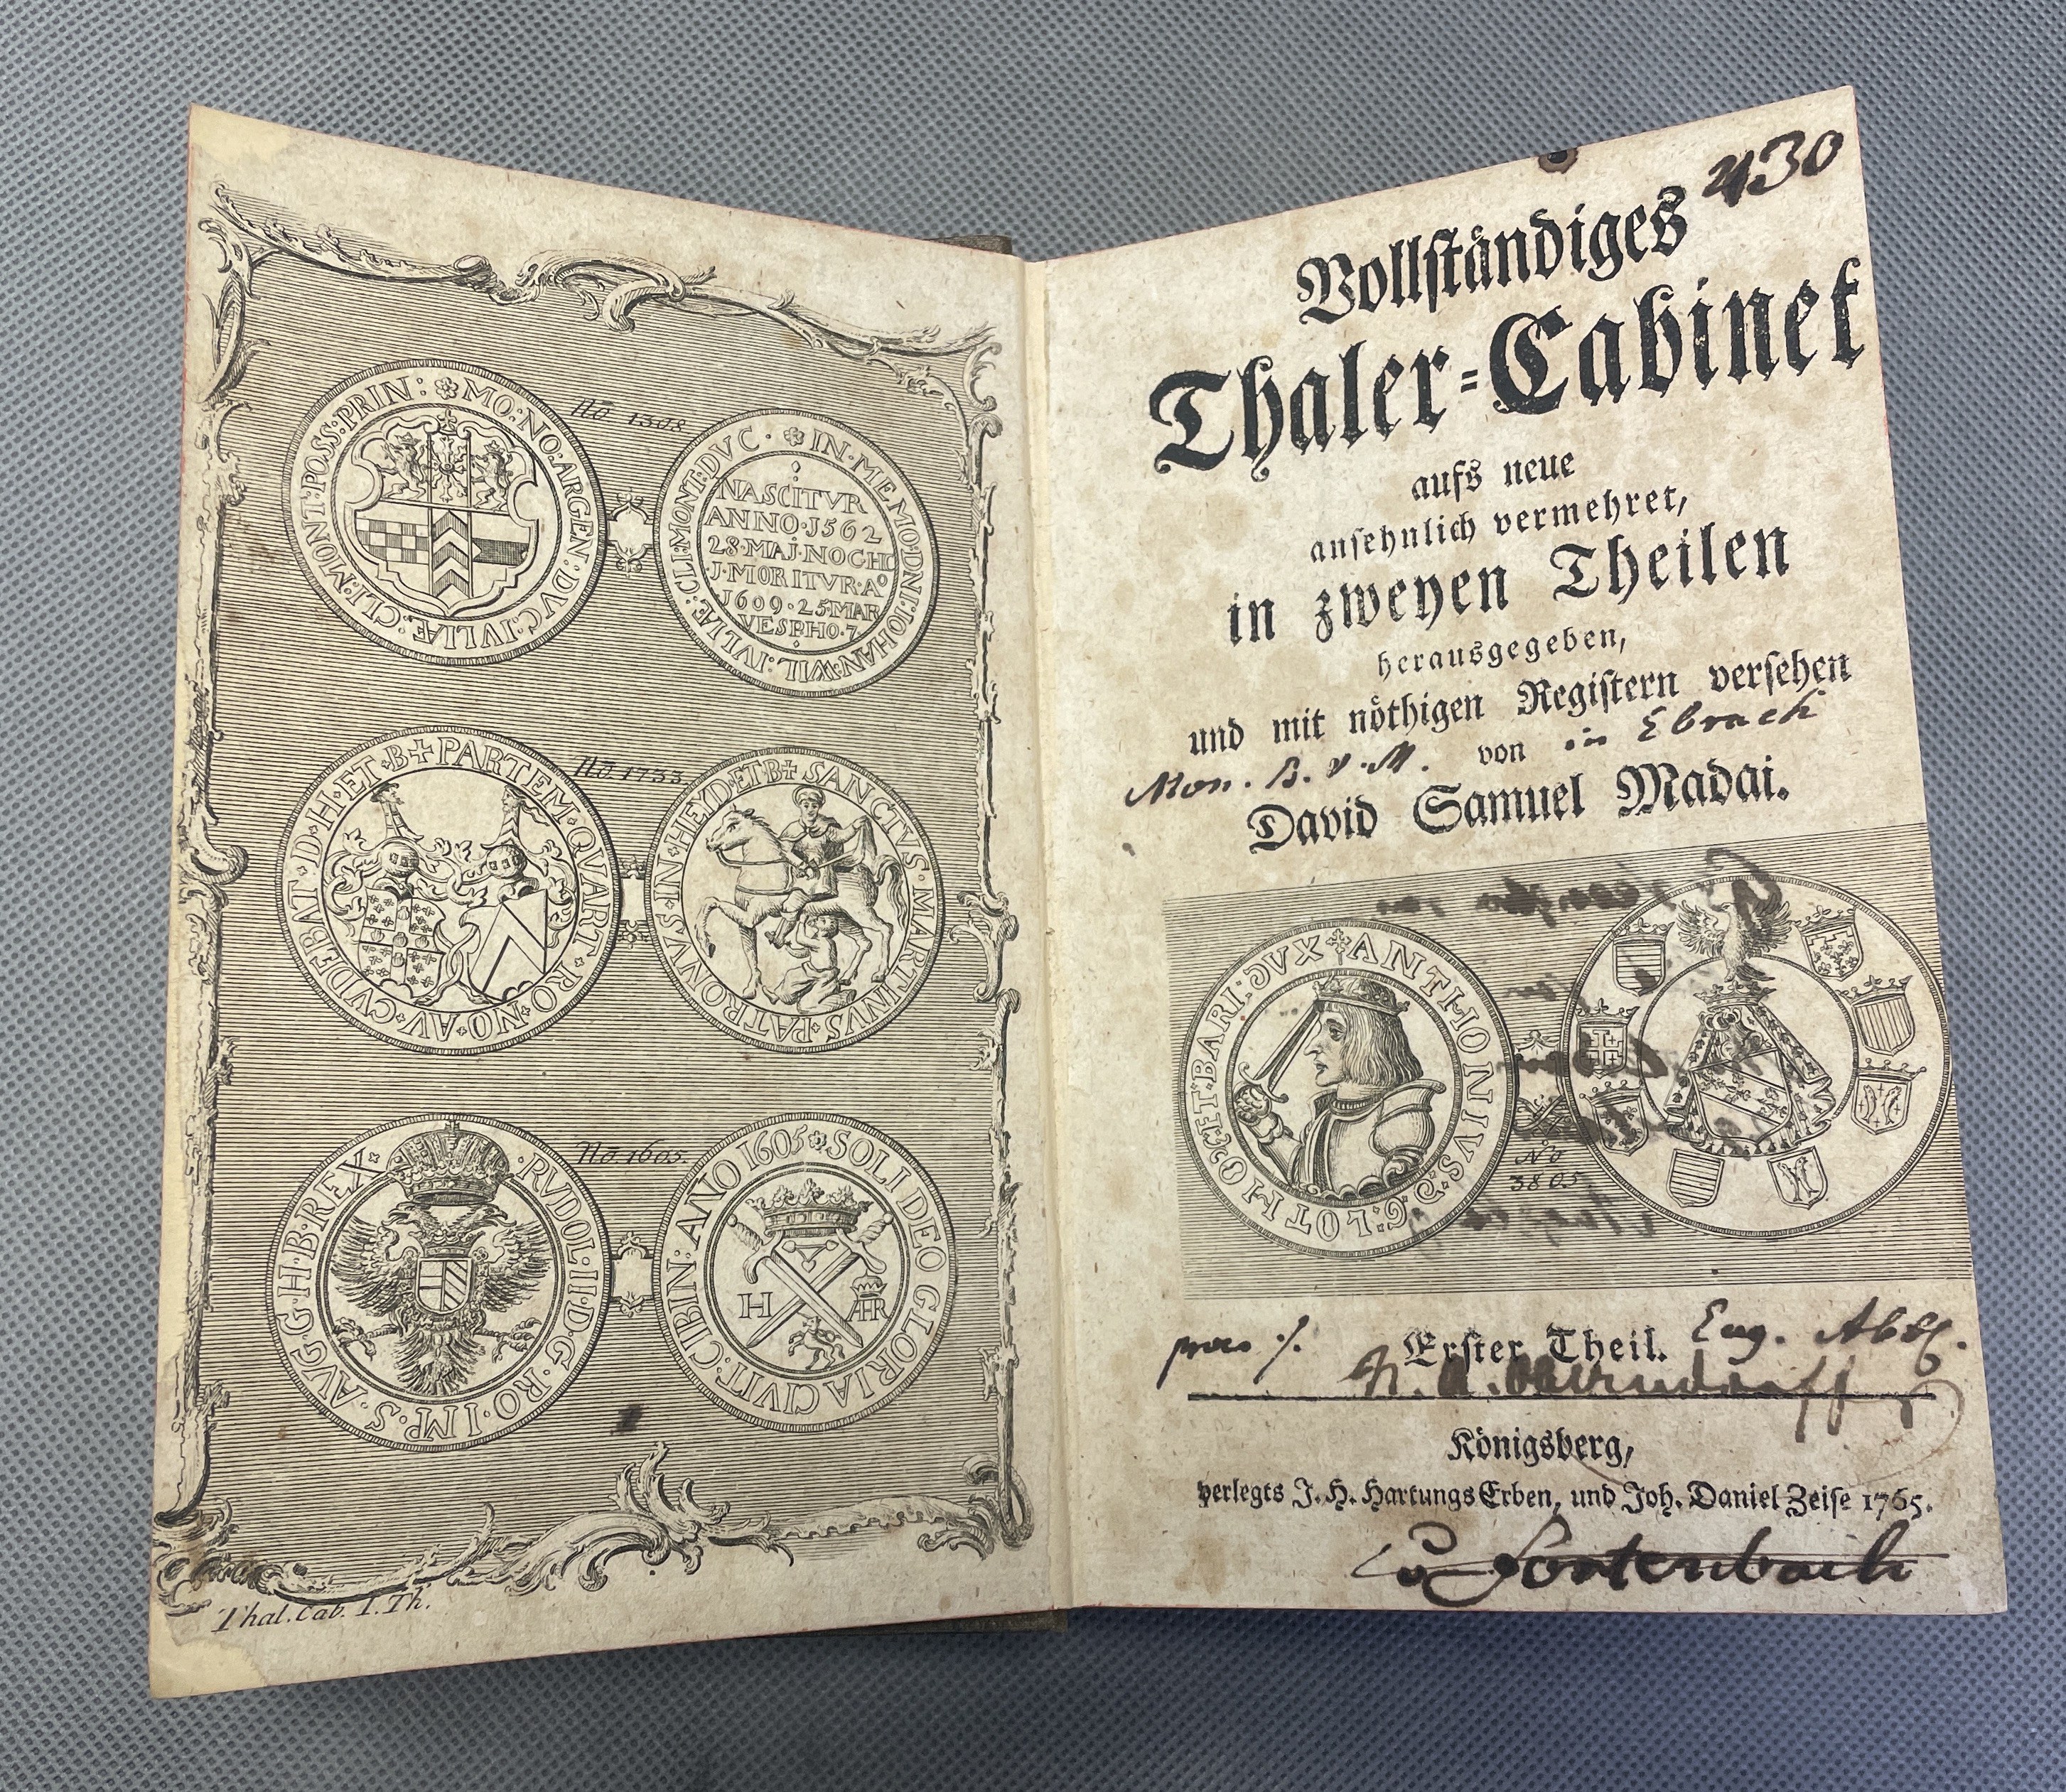 No 1308
MO: NO: ARGEN: DVC: IVLIÆ: CLI: MONT: POSS: PRIN:
IN·MEMO:DNI:IOHAN·WIL:IVLIÆ:CLI:MONT:DVC·
NASCITVR
ANNO·J562
28·MAJ·NOCHD
J·MORITVR·A°
J609·25·MAR
VESP·HO·7
No 1733
PARTEM·QVART·RO·NO·AV·CVDEBAT·D·H·ET·B
SANCTVS·MARTINVS·PATRONVS·IN·HEYD·ET·B
No 1605
RVDOL·II·D·G·RO·IMP·S·AVG·G·H·B·REX
SOLI DEO GLORIA CIVIT: CIBIN: ANNO 1605
H
Thal. Cab. I. Th.
430
Vollständiges
Thaler-Cabinet
aufs neue
ansehnlich vermehret,
in zweyen Theilen
herausgegeben,
und mit nöthigen Registern versehen
Mon. B. v. M. von in Ebrach
David Samuel Madai.
ANTHONIVS·D·G·LOTHO·ET·BARI·DVX
No
3805
Erster Theil.
Königsberg,
verlegts J. H. Hartungs Erben, und Joh. Daniel Zeise 1765.